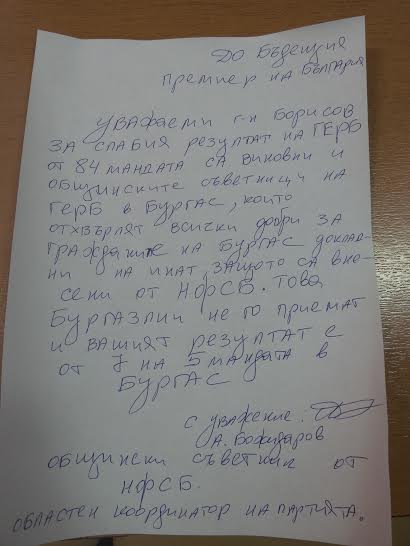 До Бъдещия
премиер на България
Уважаеми г-н Борисов
за слабия резултат на ГЕРБ
от 84 мандата са виновни и
общинските съветници на
ГЕРБ в Бургас, които
отхвърлят всички добри за
гражданите на Бургас доклад-
ни на инат, защото са вне-
сени от НФСБ. Това
Бургазлии не го приемат
и вашият резултат е
от 7 на 5 мандата в
Бургас
с уважение:
А. Божидаров
общински съветник от
НФСБ.
Областен координатор на партията.